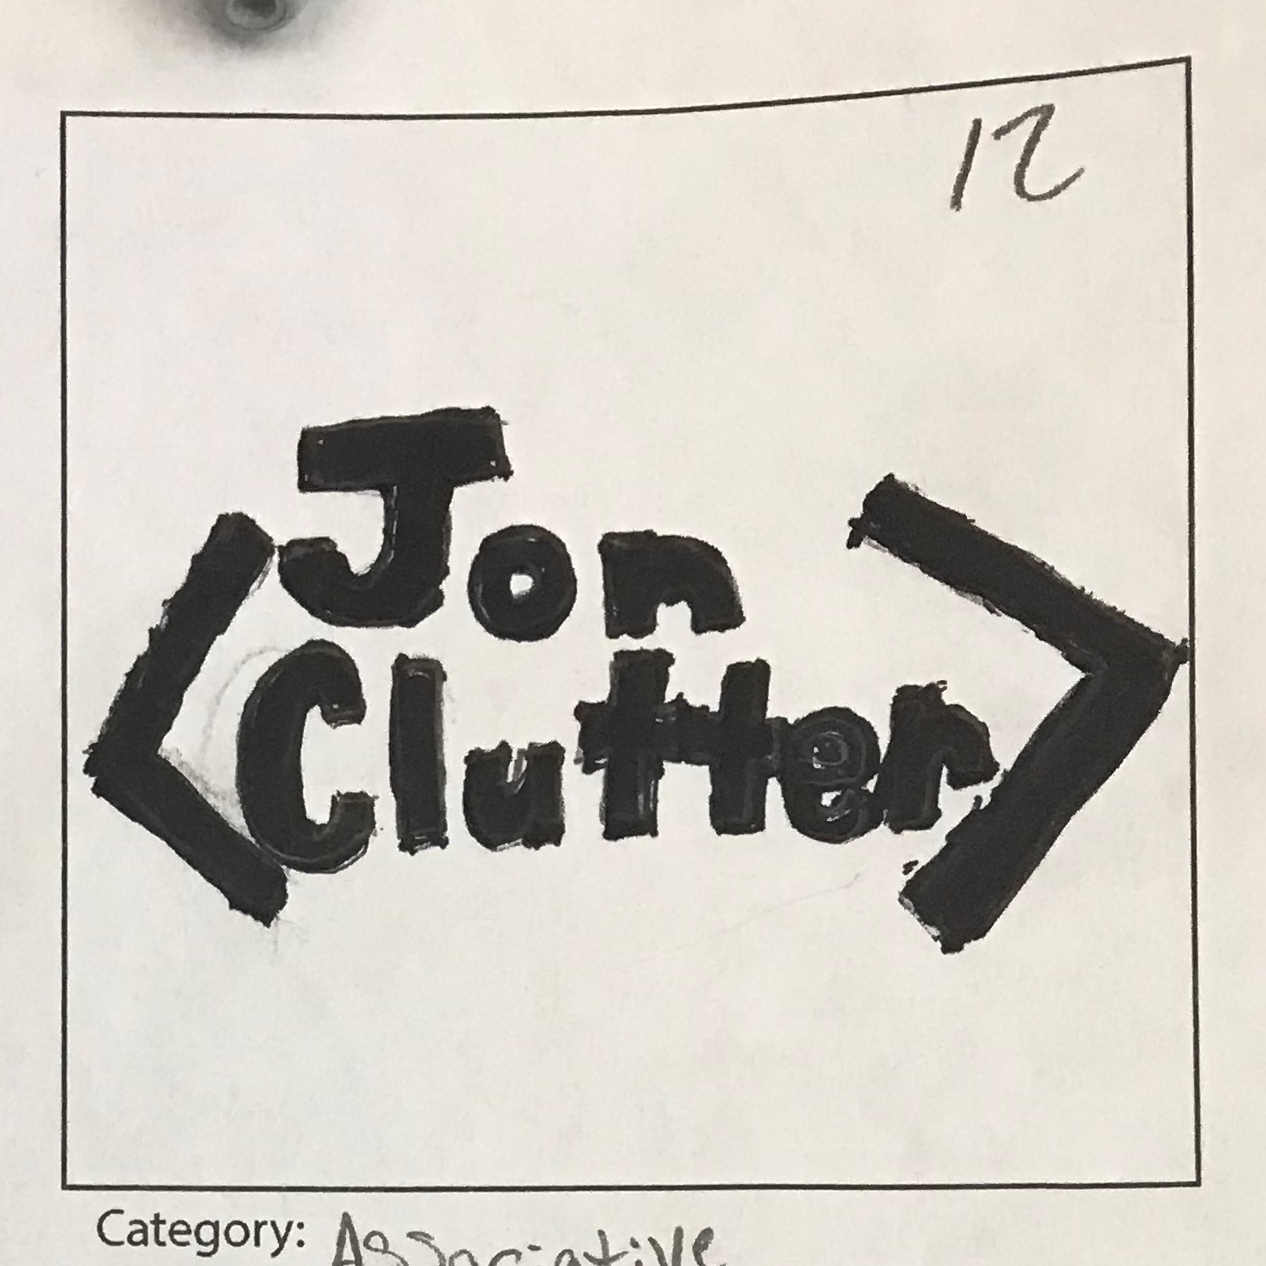 12
Jon
<Clutter>
Category: Associative